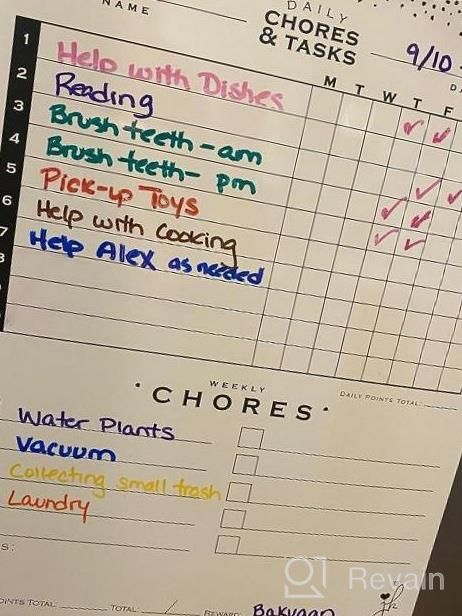 NAME
DAILY
CHORES
& TASKS
9/10
M T W T F
1 Help with Dishes
2 Reading
3 Brush teeth - am
4 Brush teeth - pm
5 Pick-up Toys
6 Help with cooking
7 Help Alex as needed
WEEKLY
· CHORES ·
DAILY POINTS TOTAL:
Water Plants
Vacuum
Collecting small trash
Laundry
S:
POINTS TOTAL: TOTAL: / REWARD: Bakugan
Revain